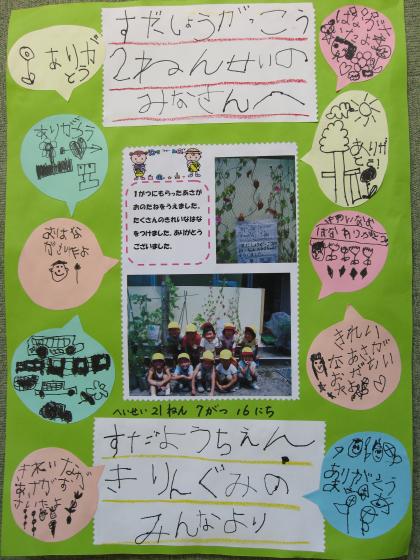 すだしょうがっこう
2ねんせいの
みなさんへ
ありが
とう
ありがとう
おはな
がさいたよ
1がつにもらったあさが
おのたねをうえました。
たくさんのきれいなはな
をつけました。ありがとう
ございました。
ありが
とう
きれい
なあさが
へいせい21ねん 7がつ 16にち
すだようちえん
きりんぐみの
みんなより
ありがとう